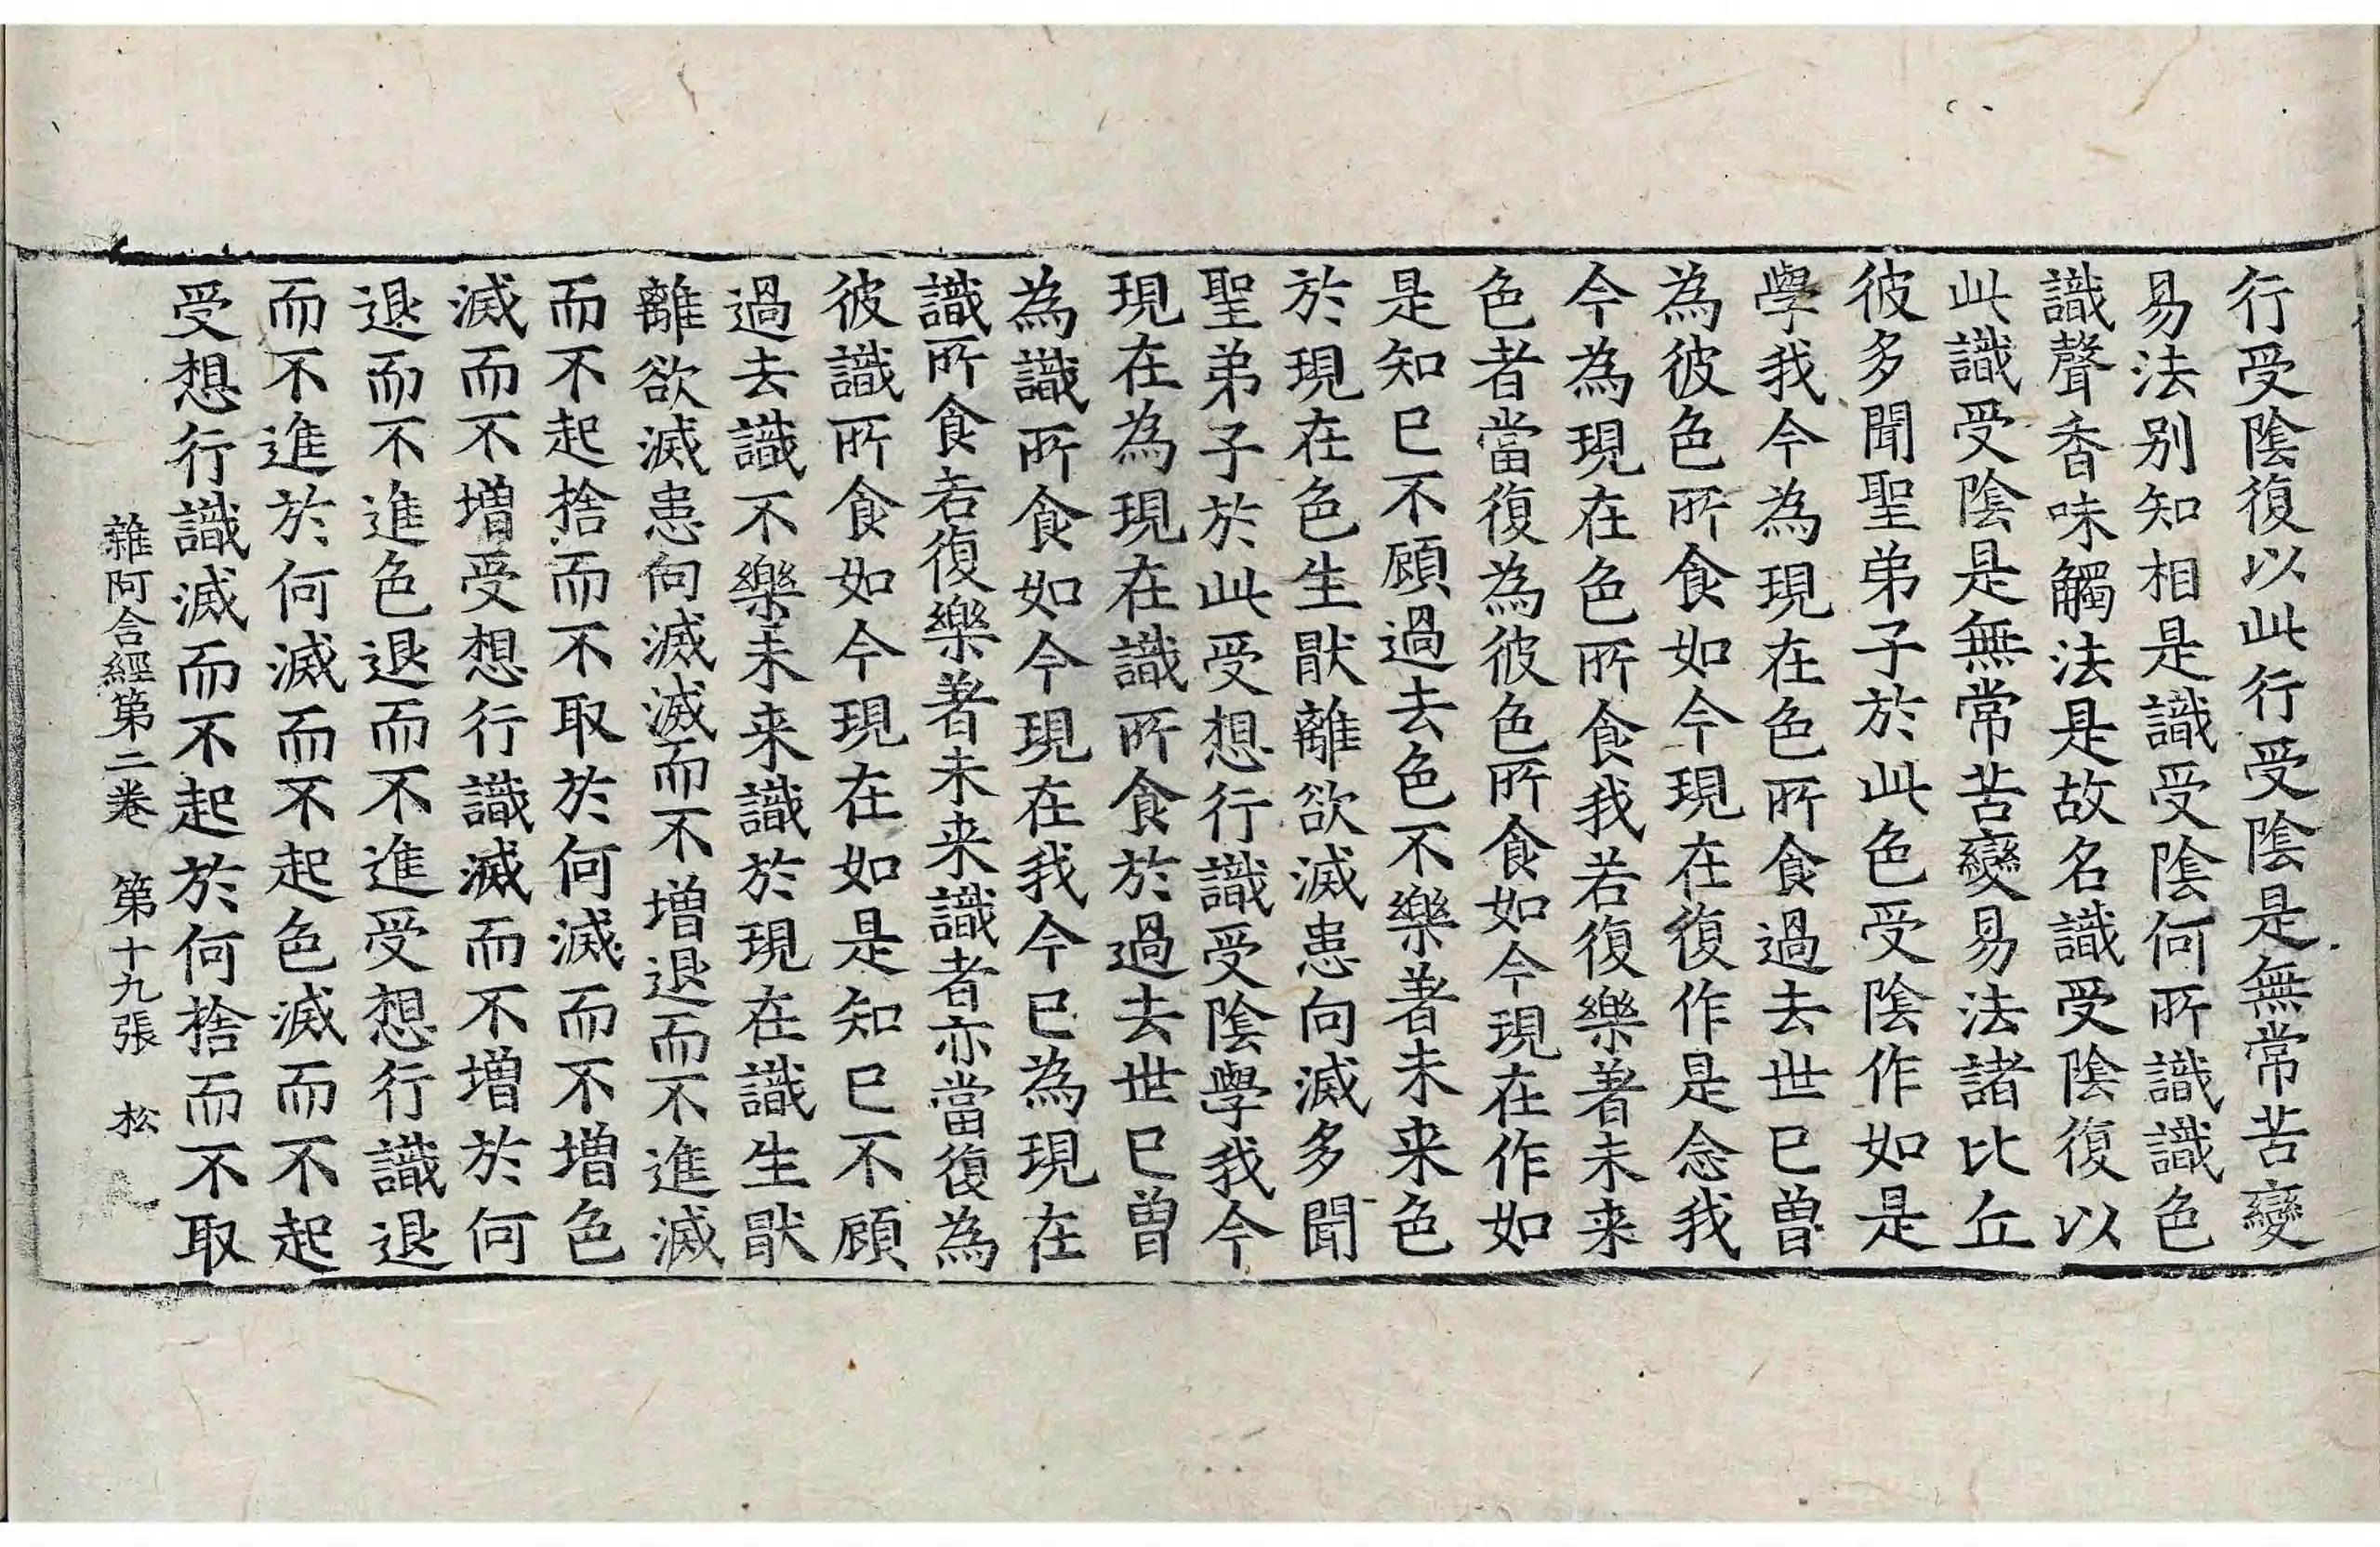 行受陰復以此行受陰是無常苦變
易法别知相是識受陰何所識識色
識聲香味觸法是故名識受陰復以
此識受陰是無常苦變易法諸比丘
彼多聞聖弟子於此色受陰作如是
學我今為現在色所食過去世已曾
為彼色所食如今現在復作是念我
今為現在色所食我若復樂著未来
色者當復為彼色所食如今現在作如
是知已不顧過去色不樂著未来色
於現在色生猒離欲滅患向滅多聞
聖弟子於此受想行識受陰學我今
現在為現在識所食於過去世已曾
為識所食如今現在我今已為現在
識所食若復樂著未来識者亦當復為
彼識所食如今現在如是知已不顧
過去識不樂未来識於現在識生猒
離欲滅患向滅滅而不增退而不進滅
而不起捨而不取於何滅而不增色
滅而不增受想行識滅而不增於何
退而不進色退而不進受想行識退
而不進於何滅而不起色滅而不起
受想行識滅而不起於何捨而不取
雜阿含經第二卷 第十九張 松